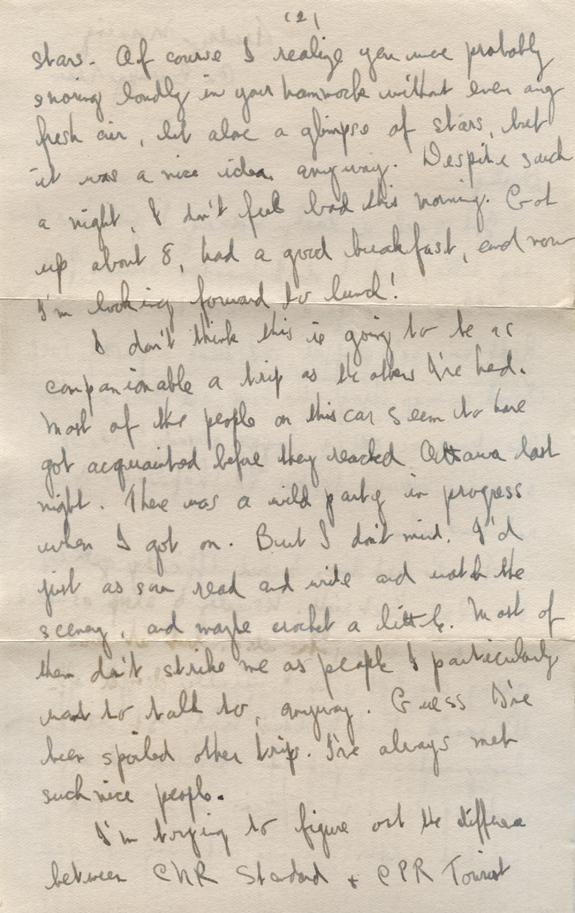 (2)
stars. Of course I realize you were probably
snoring loudly in your hammock without even any
fresh air, let alone a glimpse of stars, but
it was a nice idea, anyway. Despite such
a night, I don't feel bad this morning. Got
up about 8, had a good breakfast, and now
I'm looking forward to lunch!
I don't think this is going to be as
companionable a trip as the others I've had.
Most of the people on this car seem to have
got acquainted before they reached Ottawa last
night. There was a wild party in progress
when I got on. But I don't mind. I'd
just as soon read and write and watch the
scenery, and maybe crochet a little. Most of
them don't strike me as people I particularly
want to talk to, anyway. Guess I've
been spoiled other trips. I've always met
such nice people.
I'm trying to figure out the difference
between CNR Standard + CPR Tourist